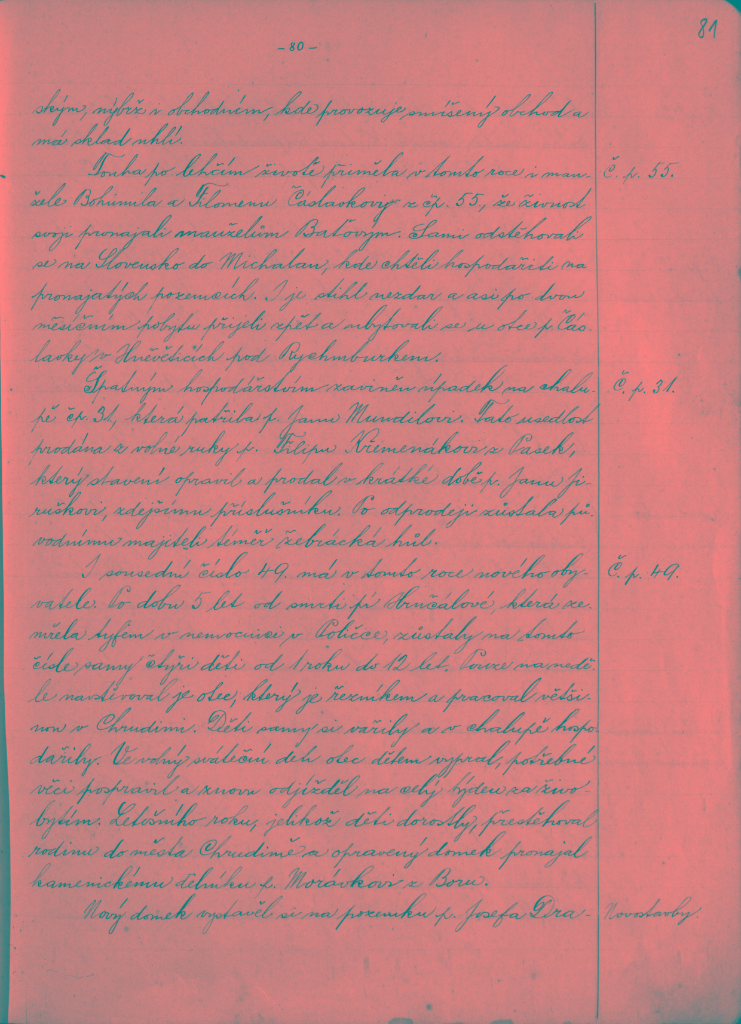 81
- 80 -
ským, nýbrž i obchodním, kde provozuje smíšený obchod a
má sklad uhlí.
Touha po lehčím životě přiměla v tomto roce i man- Č. p. 55.
žele Bohumila a Filomenu Čáslavkovy z čp. 55., že živnost
svoji pronajali manželům Baťovým. Sami odstěhovali
se na Slovensko do Michalan, kde chtěli hospodařiti na
pronajatých pozemcích. I je stihl nezdar a asi po dvou
měsíčním pobytu přijeli zpět a ubytovali se u otce p. Čás-
lavky v Hněvěticích pod Rychmburkem.
Špatným hospodářstvím zaviněn úpadek na chalu- Č. p. 31.
pě čp 31., která patřila p. Janu Mundilovi. Tato usedlost
prodána z volné ruky p. Filipu Křemenákovi z Pasek,
který stavení opravil a prodal v krátké době p. Janu Ji-
ruškovi, zdejšímu příslušníku. Po odprodeji zůstala pů-
vodnímu majiteli téměř žebrácká hůl.
I sousední číslo 49. má v tomto roce nového oby- Č. p. 49.
vatele. Po dobu 5 let od smrti pí Hrnčálové, která ze-
mřela tyfem v nemocnici v Poličce, zůstaly na tomto
čísle samy čtyři děti od 1 roku do 12 let. Pouze na nedě-
le navštěvoval je otec, který je řezníkem a pracoval větši-
nou v Chrudimi. Děti samy si vařily a v chalupě hospo-
dařily. Ve volný sváteční den otec dětem vypral, potřebné
věci pospravil a znovu odjížděl na celý týden za živo-
bytím. Letošního roku, jelikož děti dorostly, přestěhoval
rodinu do města Chrudimě a opravený domek pronajal
kamenickému dělníku p. Morávkovi z Boru.
Nový domek vystavěl si na pozemku p. Josefa Dra- Novostavby.